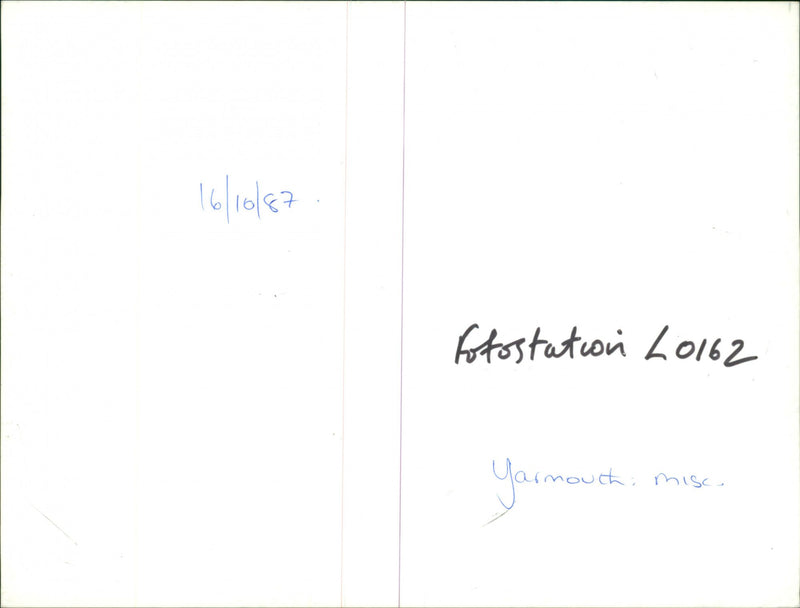 16/10/87
Fotostation L0162
Yarmouth: misc.